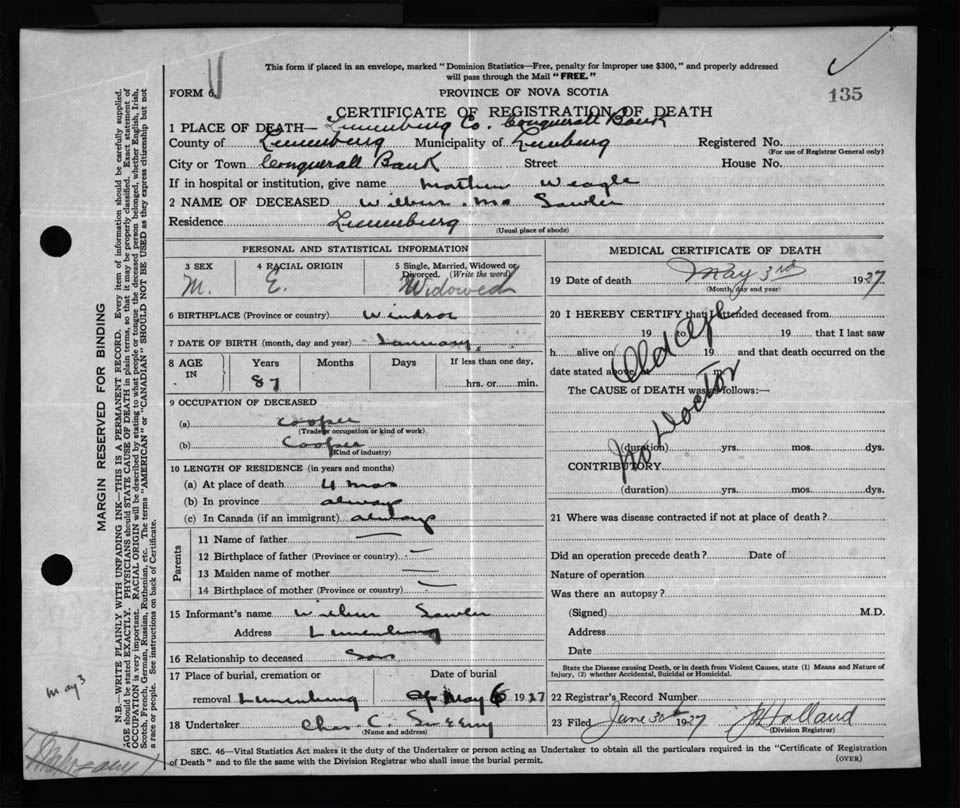 This form if placed in an envelope, marked "Dominion Statistics—Free, penalty for improper use $300," and properly addressed
will pass through the Mail "FREE."
FORM 6.
PROVINCE OF NOVA SCOTIA
135
CERTIFICATE OF REGISTRATION OF DEATH
1 PLACE OF DEATH— Lunenburg Co. Conquerall Bank
County of Lunenburg Municipality of Lunburg Registered No.
(For use of Registrar General only)
City or Town Conquerall Bank Street House No.
If in hospital or institution, give name Mathew Weagle
2 NAME OF DECEASED Wilbur Sawler
Residence Lunenburg
(Usual place of abode)
PERSONAL AND STATISTICAL INFORMATION
3 SEX 4 RACIAL ORIGIN 5 Single, Married, Widowed or
Divorced. (Write the word)
M. E. Widowed
6 BIRTHPLACE (Province or country) Windsor
7 DATE OF BIRTH (month, day and year) January
8 AGE Years Months Days If less than one day,
IN 87 hrs. or min.
9 OCCUPATION OF DECEASED
(a) Cooper
(Trade or occupation or kind of work)
(b) Cooper
(Kind of industry)
10 LENGTH OF RESIDENCE (in years and months)
(a) At place of death 4 mos
(b) In province always
(c) In Canada (if an immigrant) always
Parents
11 Name of father —
12 Birthplace of father (Province or country) —
13 Maiden name of mother —
14 Birthplace of mother (Province or country) —
15 Informant's name Wilbur Sawler
Address Lunenburg
16 Relationship to deceased Son
17 Place of burial, cremation or Date of burial
removal Lunenburg May 6 1927
18 Undertaker Chas. C. Sweeny
(Name and address)
MEDICAL CERTIFICATE OF DEATH
19 Date of death May 3rd 1927
(Month, day and year)
20 I HEREBY CERTIFY that I attended deceased from
19 to 19 that I last saw
h alive on 19 and that death occurred on the
date stated above, at m.
The CAUSE of DEATH was as follows:—
Old Age
No Doctor
(duration) yrs. mos. dys.
CONTRIBUTORY
(duration) yrs. mos. dys.
21 Where was disease contracted if not at place of death?
Did an operation precede death? Date of
Nature of operation
Was there an autopsy?
(Signed) M.D.
Address
Date
State the Disease causing Death, or in death from Violent Causes, state (1) Means and Nature of
Injury, (2) whether Accidental, Suicidal or Homicidal.
22 Registrar's Record Number
23 Filed June 30th 1927 J Holland
(Division Registrar)
SEC. 46—Vital Statistics Act makes it the duty of the Undertaker or person acting as Undertaker to obtain all the particulars required in the "Certificate of Registration
of Death" and to file the same with the Division Registrar who shall issue the burial permit.
(OVER)
MARGIN RESERVED FOR BINDING
N.B.—WRITE PLAINLY WITH UNFADING INK—THIS IS A PERMANENT RECORD. Every item of information should be carefully supplied.
AGE should be stated EXACTLY. PHYSICIANS should STATE CAUSE OF DEATH in plain terms, so that it may be properly classified. Exact statement of
OCCUPATION is very important. RACIAL ORIGIN will be described by stating to what people or tongue the deceased person belonged, whether English, Irish,
Scotch, French, German, Russian, Ruthenian, etc. The terms "AMERICAN" or "CANADIAN" SHOULD NOT BE USED as they express citizenship but not
a race or people. See instructions on back of Certificate.
May 3